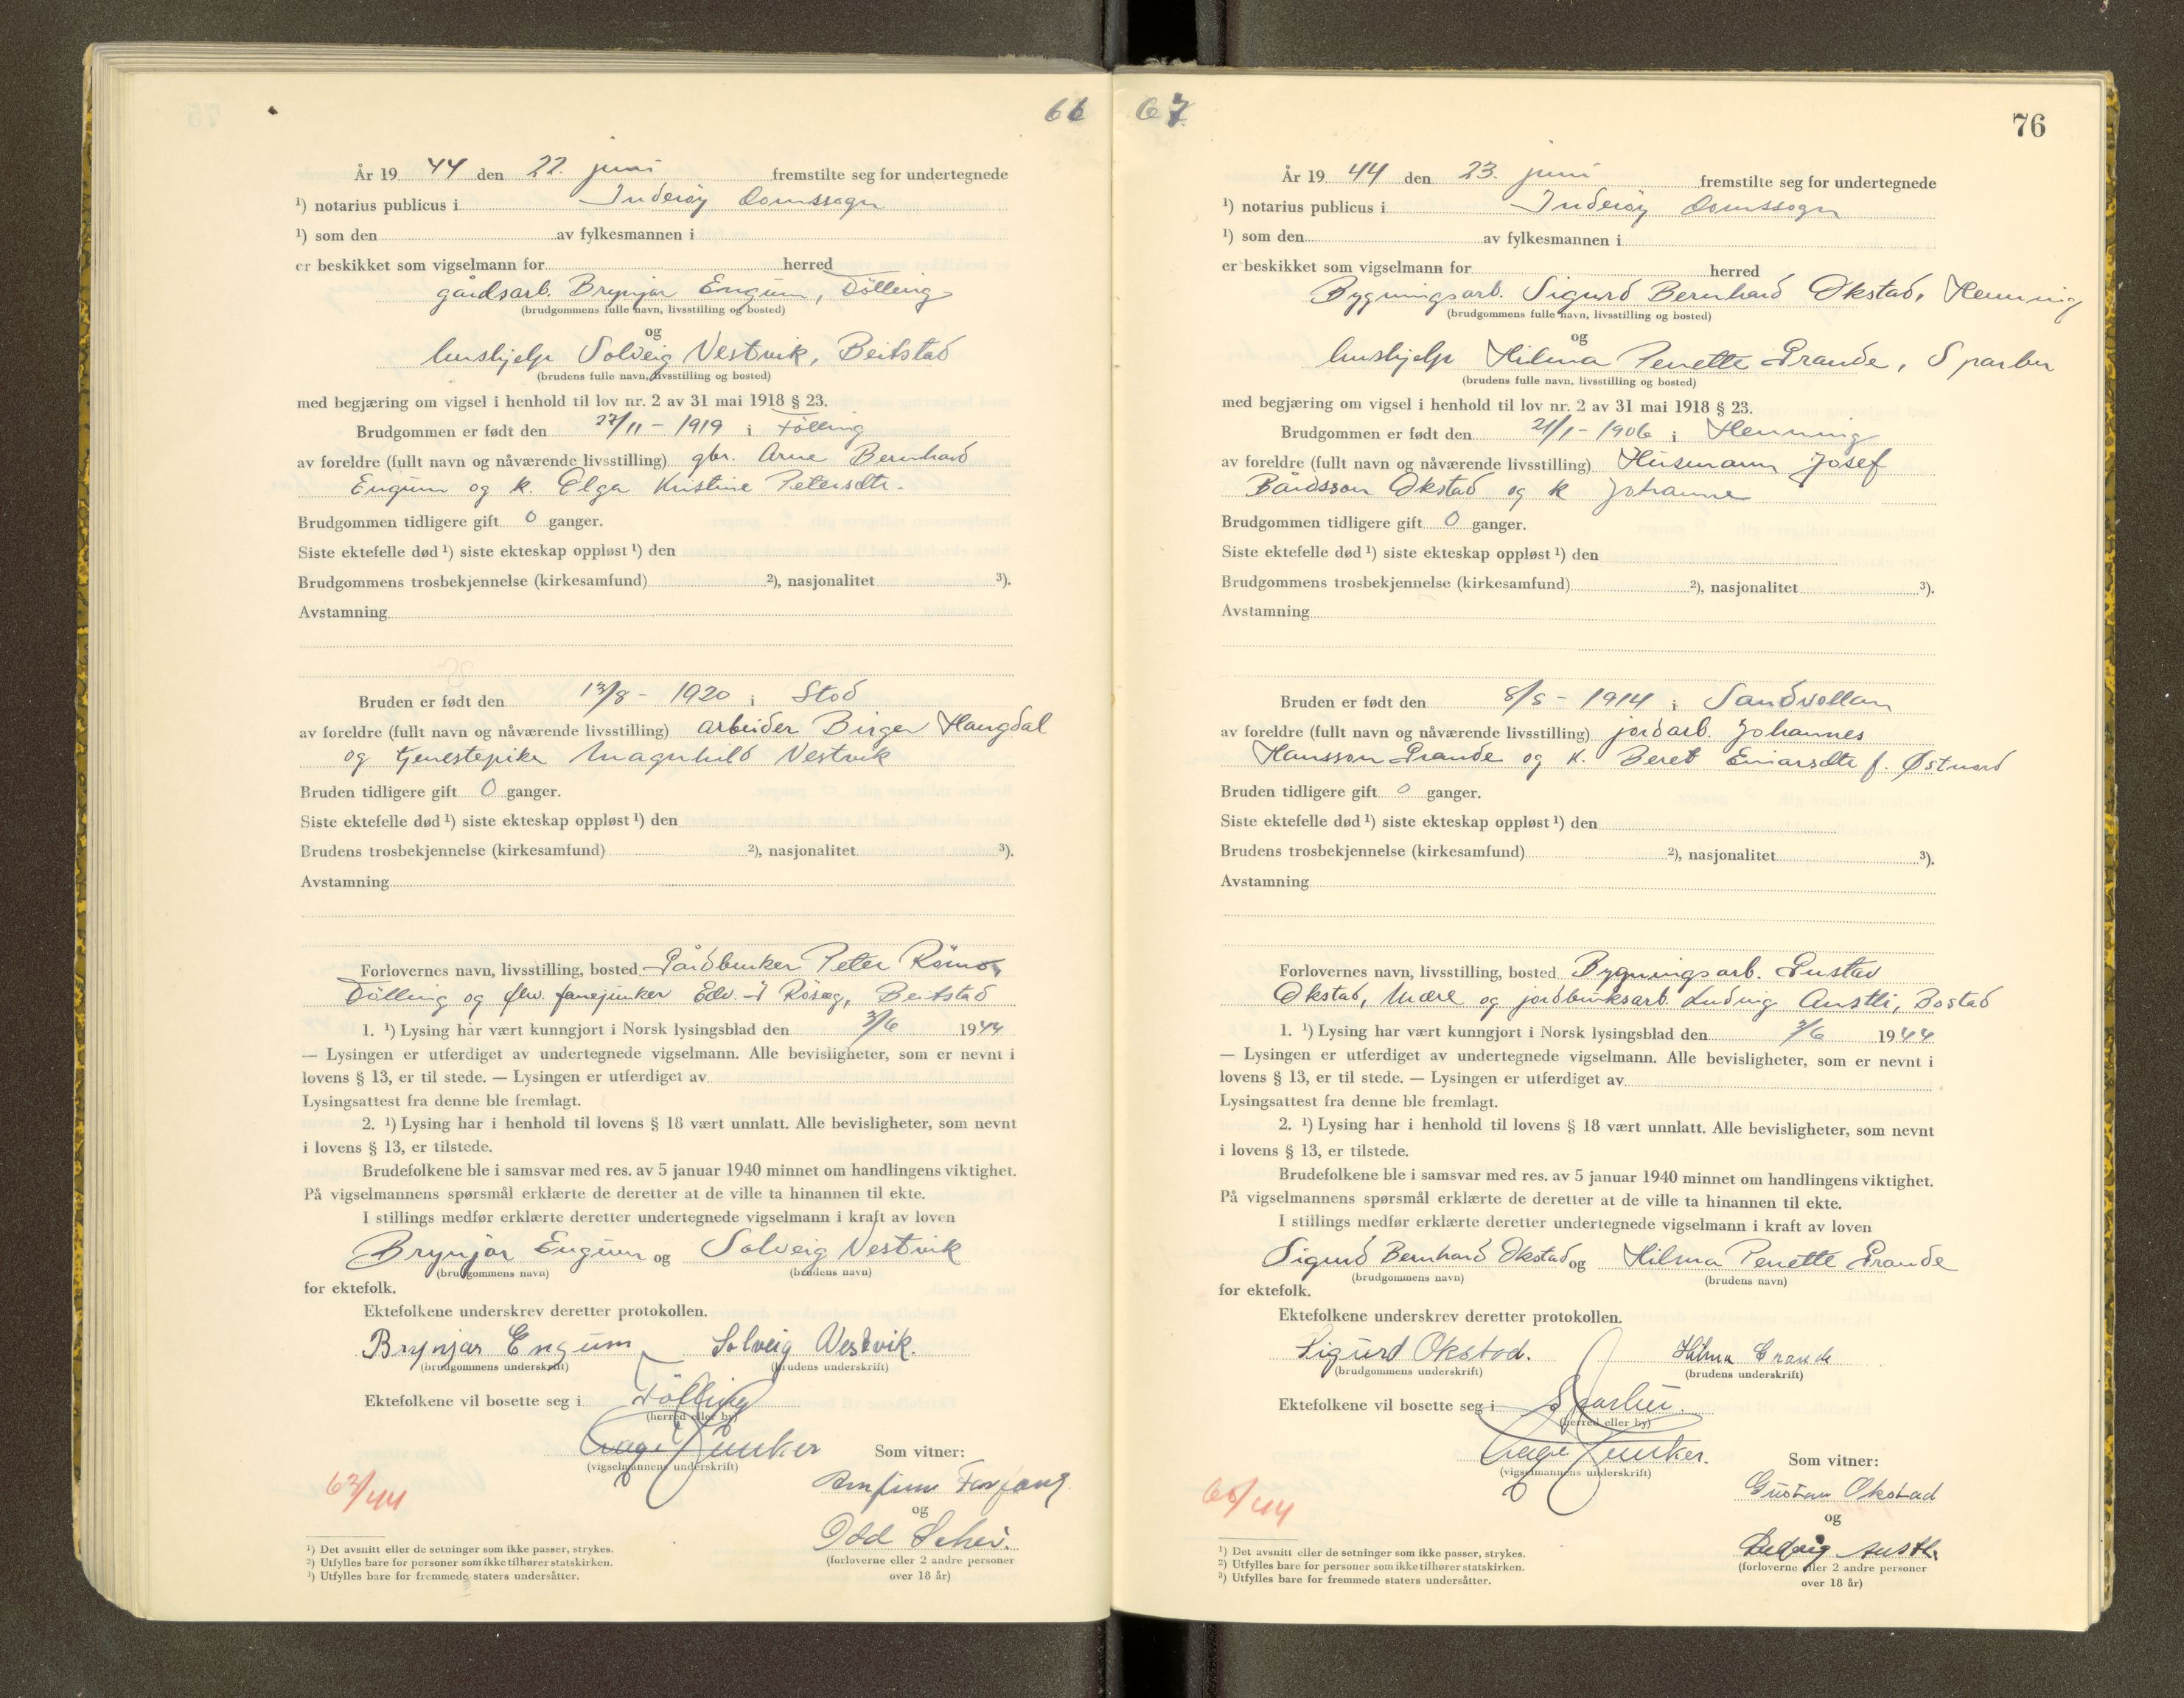 66
År 19 44 den 22. juni fremstilte seg for undertegnede
¹) notarius publicus i Inderøy domssogn
¹) som den av fylkesmannen i
er beskikket som vigselmann for herred
gårdsarb. Brynjar Engum, Følling
(brudgommens fulle navn, livsstilling og bosted)
og
hushjelp Solveig Vestvik, Beitstad
(brudens fulle navn, livsstilling og bosted)
med begjæring om vigsel i henhold til lov nr. 2 av 31 mai 1918 § 23.
Brudgommen er født den 27/11 - 1919 i Følling
av foreldre (fullt navn og nåværende livsstilling) gbr. Arne Bernhard
Engum og k. Elga Kristine Petersdtr.
Brudgommen tidligere gift 0 ganger.
Siste ektefelle død ¹) siste ekteskap oppløst ¹) den
Brudgommens trosbekjennelse (kirkesamfund) ²), nasjonalitet ³).
Avstamning
Bruden er født den 13/8 - 1920 i Stod
av foreldre (fullt navn og nåværende livsstilling) arbeider Birger Haugdal
og tjenestepike Magnhild Vestvik
Bruden tidligere gift 0 ganger.
Siste ektefelle død ¹) siste ekteskap oppløst ¹) den
Brudens trosbekjennelse (kirkesamfund) ²), nasjonalitet ³).
Avstamning
Forlovernes navn, livsstilling, bosted Gårdbruker Peter Römo,
Følling og fanejunker Edv. Røseg, Beitstad
1. ¹) Lysing har vært kunngjort i Norsk lysingsblad den 3/6 1944
— Lysingen er utferdiget av undertegnede vigselmann. Alle bevisligheter, som er nevnt i
lovens § 13, er til stede. — Lysingen er utferdiget av
Lysingsattest fra denne ble fremlagt.
2. ¹) Lysing har i henhold til lovens § 18 vært unnlatt. Alle bevisligheter, som nevnt
i lovens § 13, er tilstede.
Brudefolkene ble i samsvar med res. av 5 januar 1940 minnet om handlingens viktighet.
På vigselmannens spørsmål erklærte de deretter at de ville ta hinannen til ekte.
I stillings medfør erklærte deretter undertegnede vigselmann i kraft av loven
Brynjar Engum og Solveig Vestvik
(brudgommens navn) (brudens navn)
for ektefolk.
Ektefolkene underskrev deretter protokollen.
Brynjar Engum Solveig Vestvik.
(brudgommens underskrift) (brudens underskrift)
Ektefolkene vil bosette seg i Følling
(herred eller by)
Aage Junker Som vitner:
(vigselmannens underskrift)
63/44
Arnfinn
og
Odd
(forloverne eller 2 andre personer
over 18 år)
¹) Det avsnitt eller de setninger som ikke passer, strykes.
²) Utfylles bare for personer som ikke tilhører statskirken.
³) Utfylles bare for fremmede staters undersåtter.
67.
76
År 19 44 den 23. juni fremstilte seg for undertegnede
¹) notarius publicus i Inderøy domssogn
¹) som den av fylkesmannen i
er beskikket som vigselmann for herred
Bygningsarb. Sigurd Bernhard Økstad, Henning
(brudgommens fulle navn, livsstilling og bosted)
og
hushjelp Hilma Penette Grande, Sparbu
(brudens fulle navn, livsstilling og bosted)
med begjæring om vigsel i henhold til lov nr. 2 av 31 mai 1918 § 23.
Brudgommen er født den 21/1 - 1906 i Henning
av foreldre (fullt navn og nåværende livsstilling) Husmann Josef
Bårdsson Økstad og k Johanne
Brudgommen tidligere gift 0 ganger.
Siste ektefelle død ¹) siste ekteskap oppløst ¹) den
Brudgommens trosbekjennelse (kirkesamfund) ²), nasjonalitet ³).
Avstamning
Bruden er født den 8/5 - 1914 i Sandvollan
av foreldre (fullt navn og nåværende livsstilling) jordarb. Johannes
Hansson Grande og k. Beret Einarsdtr f. Østnord
Bruden tidligere gift 0 ganger.
Siste ektefelle død ¹) siste ekteskap oppløst ¹) den
Brudens trosbekjennelse (kirkesamfund) ²), nasjonalitet ³).
Avstamning
Forlovernes navn, livsstilling, bosted Bygningsarb. Gustav
Økstad, Mære og jordbruksarb. Ludvig Austli, Bostad
1. ¹) Lysing har vært kunngjort i Norsk lysingsblad den 3/6 1944
— Lysingen er utferdiget av undertegnede vigselmann. Alle bevisligheter, som er nevnt i
lovens § 13, er til stede. — Lysingen er utferdiget av
Lysingsattest fra denne ble fremlagt.
2. ¹) Lysing har i henhold til lovens § 18 vært unnlatt. Alle bevisligheter, som nevnt
i lovens § 13, er tilstede.
Brudefolkene ble i samsvar med res. av 5 januar 1940 minnet om handlingens viktighet.
På vigselmannens spørsmål erklærte de deretter at de ville ta hinannen til ekte.
I stillings medfør erklærte deretter undertegnede vigselmann i kraft av loven
Sigurd Bernhard Økstad og Hilma Penette Grande
(brudgommens navn) (brudens navn)
for ektefolk.
Ektefolkene underskrev deretter protokollen.
Sigurd Økstad. Hilma Grande
(brudgommens underskrift) (brudens underskrift)
Ektefolkene vil bosette seg i Sparbu.
(herred eller by)
Aage Junker. Som vitner:
(vigselmannens underskrift)
66/44
Gustav Økstad
og
Ludvig Austli
(forloverne eller 2 andre personer
over 18 år)
¹) Det avsnitt eller de setninger som ikke passer, strykes.
²) Utfylles bare for personer som ikke tilhører statskirken.
³) Utfylles bare for fremmede staters undersåtter.